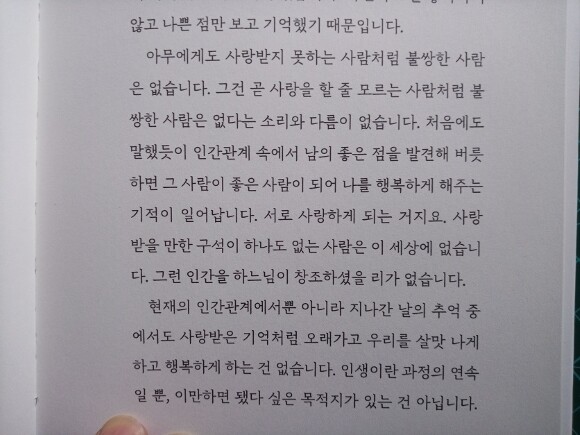 않고 나쁜 점만 보고 기억했기 때문입니다.
아무에게도 사랑받지 못하는 사람처럼 불쌍한 사람
은 없습니다. 그건 곧 사랑을 할 줄 모르는 사람처럼 불
쌍한 사람은 없다는 소리와 다름이 없습니다. 처음에도
말했듯이 인간관계 속에서 남의 좋은 점을 발견해 버릇
하면 그 사람이 좋은 사람이 되어 나를 행복하게 해주는
기적이 일어납니다. 서로 사랑하게 되는 거지요. 사랑
받을 만한 구석이 하나도 없는 사람은 이 세상에 없습니
다. 그런 인간을 하느님이 창조하셨을 리가 없습니다.
현재의 인간관계에서뿐 아니라 지나간 날의 추억 중
에서도 사랑받은 기억처럼 오래가고 우리를 살맛 나게
하고 행복하게 하는 건 없습니다. 인생이란 과정의 연속
일 뿐, 이만하면 됐다 싶은 목적지가 있는 건 아닙니다.